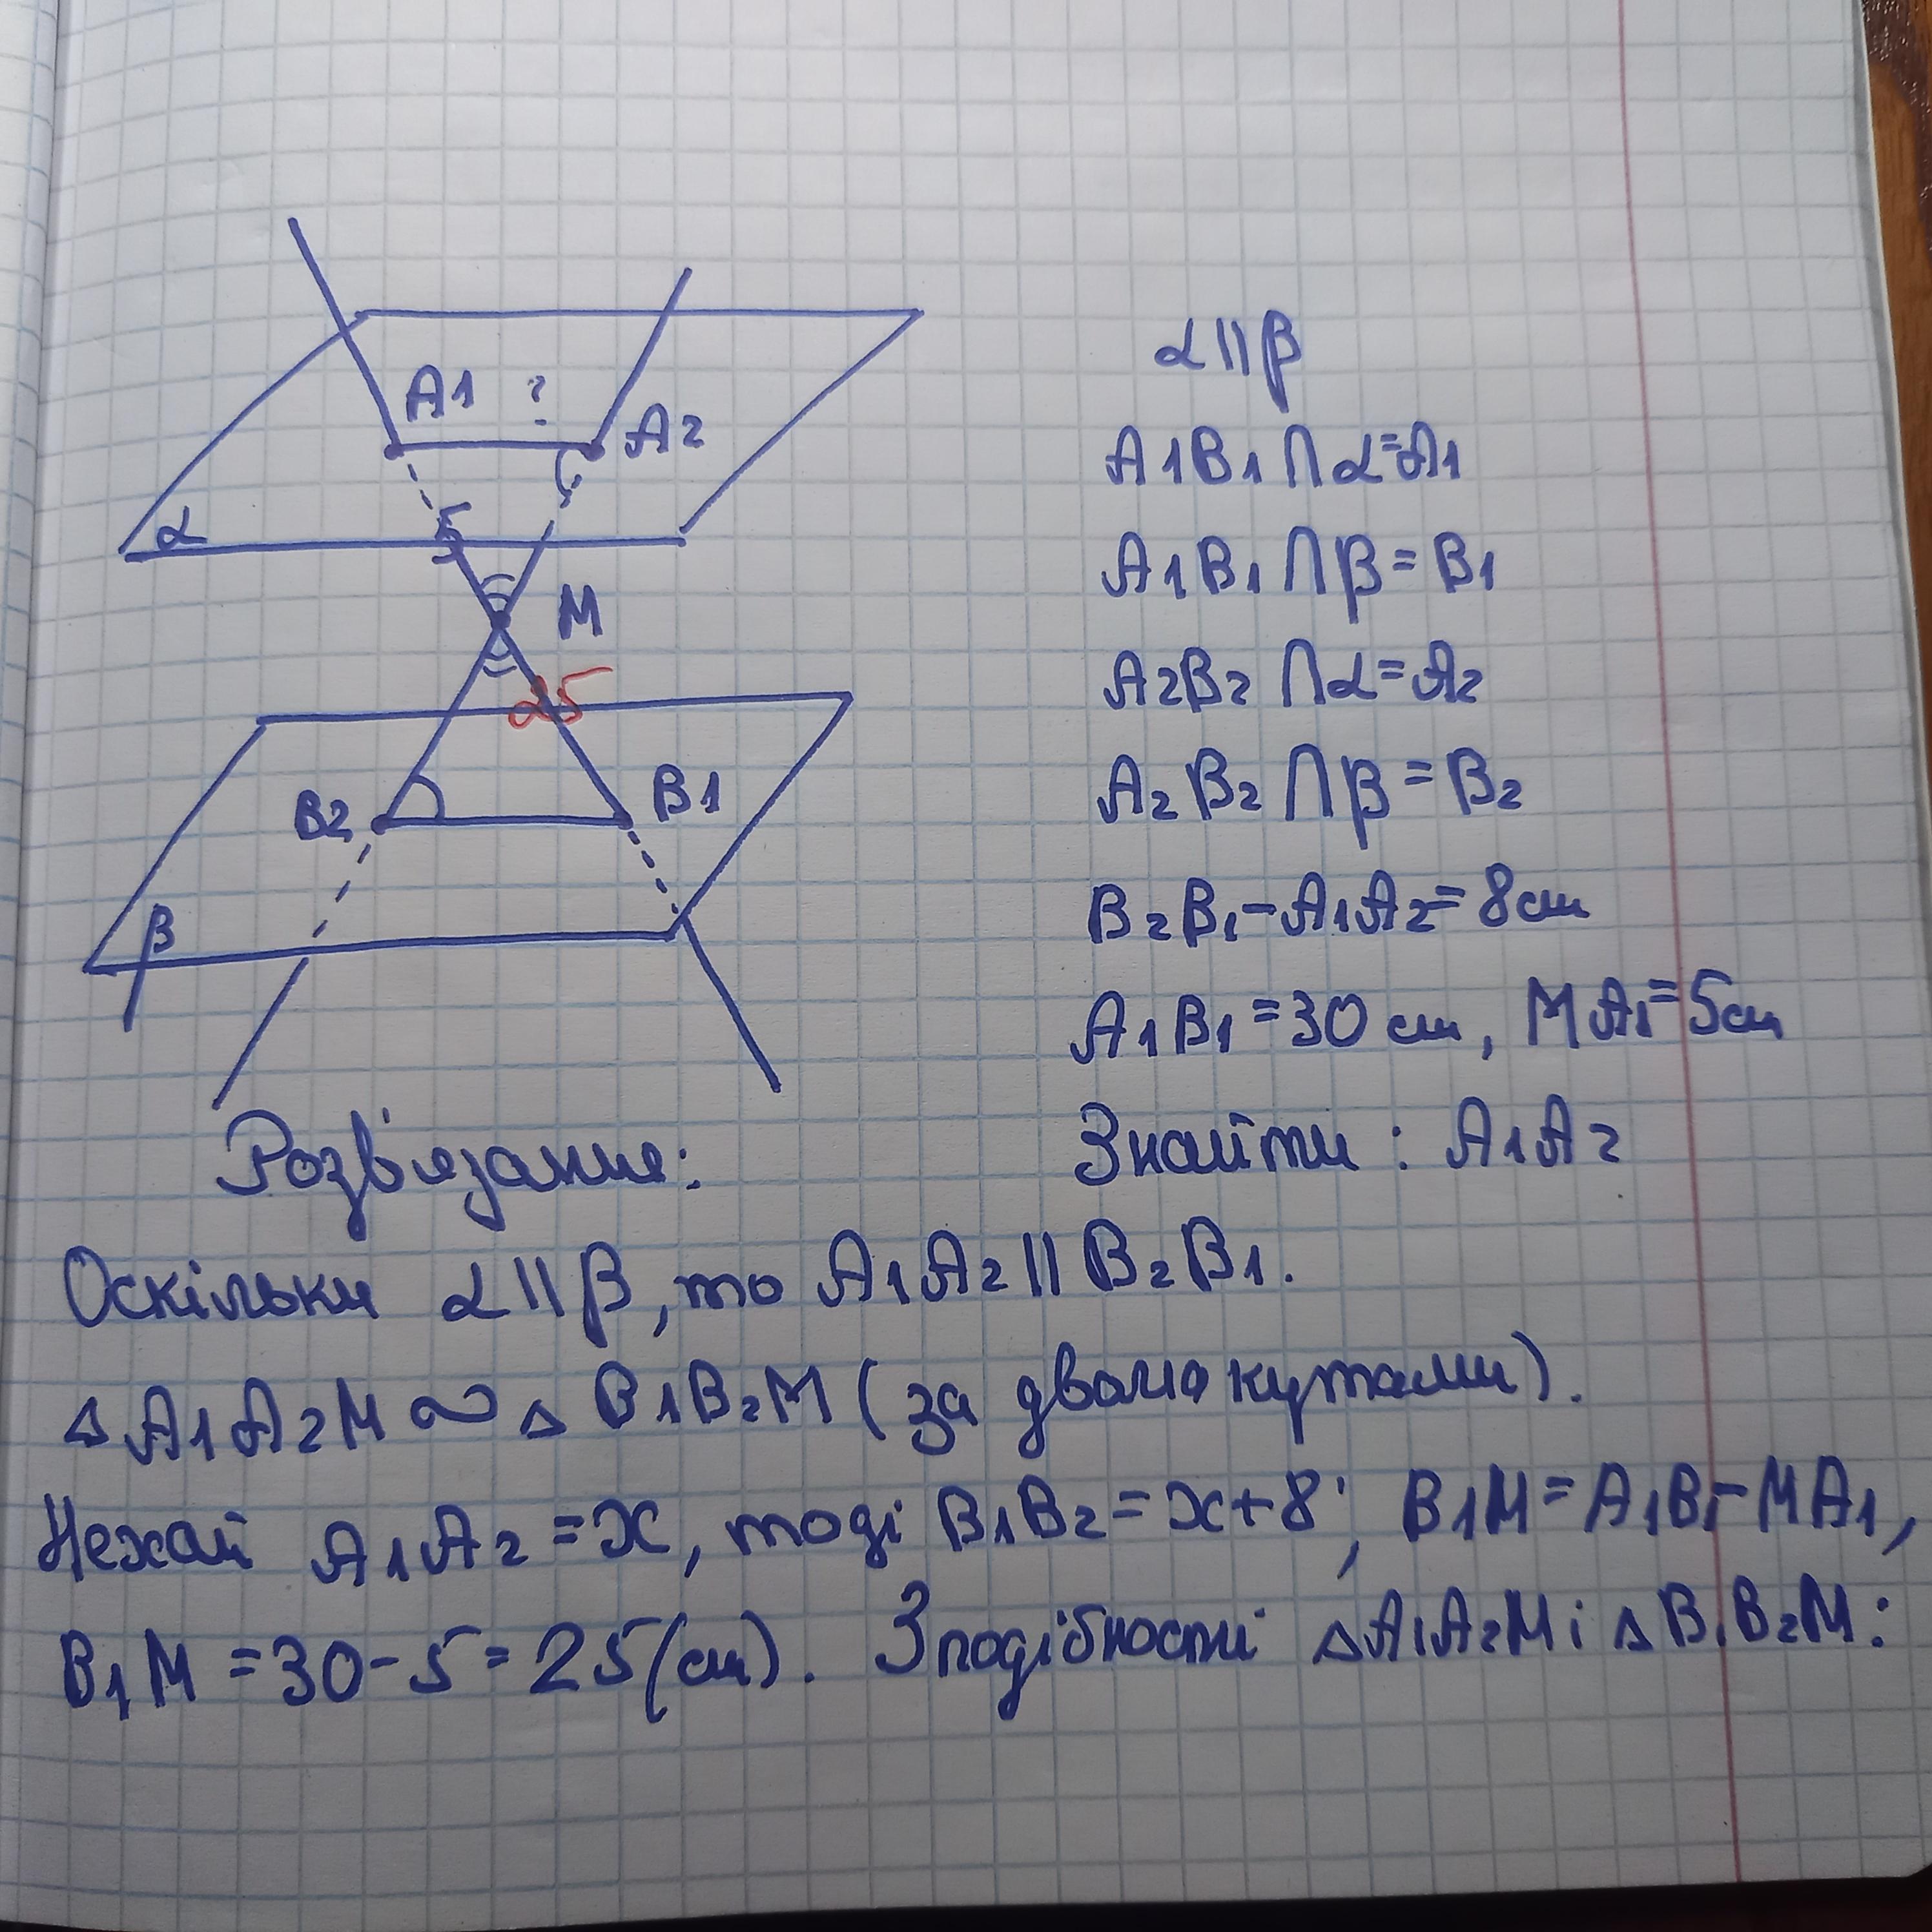 A1 ?
A2
α
5
M
25
B2
B1
β
α || β
A1B1 ∩ α = A1
A1B1 ∩ β = B1
A2B2 ∩ α = A2
A2B2 ∩ β = B2
B2B1 - A1A2 = 8 см
A1B1 = 30 см, MA1 = 5 см
Знайти: A1A2
Розв'язання:
Оскільки α || β, то A1A2 || B2B1.
△A1A2M ∾ △B1B2M (за двома кутами).
Нехай A1A2 = x, тоді B1B2 = x+8; B1M = A1B1 - MA1,
B1M = 30 - 5 = 25 (см). З подібності △A1A2M і △B1B2M: